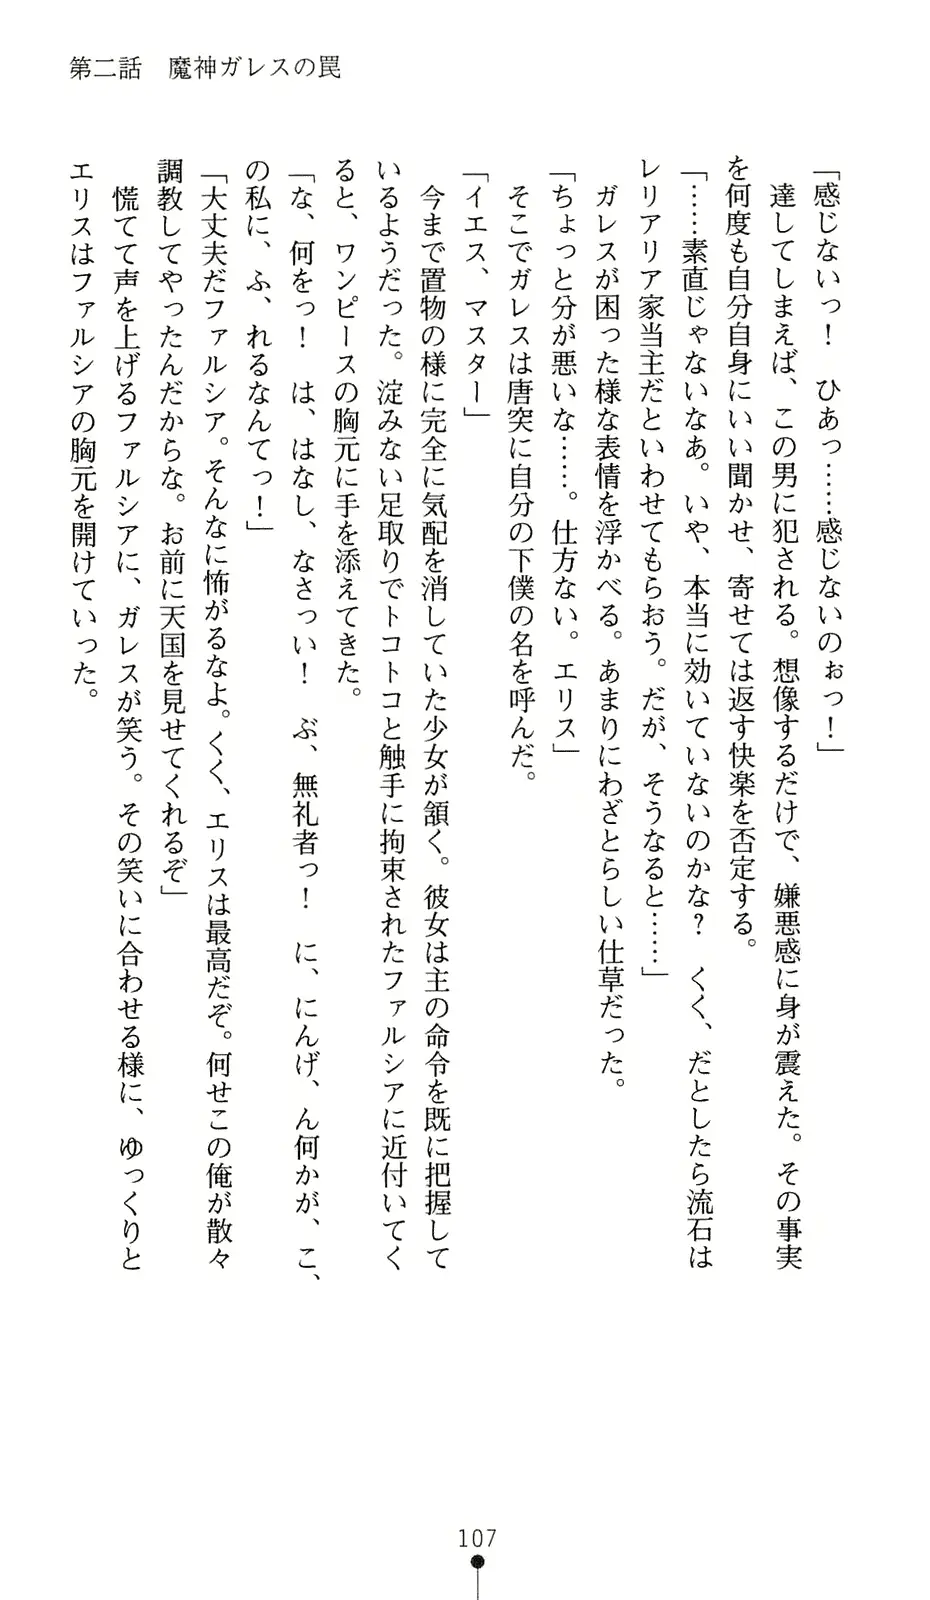 第二話　魔神ガレスの罠
「感じないっ！　ひあっ……感じないのぉっ！」
　達してしまえば、この男に犯される。想像するだけで、嫌悪感に身が震えた。その事実
を何度も自分自身にいい聞かせ、寄せては返す快楽を否定する。
「……素直じゃないなあ。いや、本当に効いていないのかな？　くく、だとしたら流石は
レリアリア家当主だといわせてもらおう。だが、そうなると……」
　ガレスが困った様な表情を浮かべる。あまりにわざとらしい仕草だった。
「ちょっと分が悪いな……。仕方ない。エリス」
　そこでガレスは唐突に自分の下僕の名を呼んだ。
「イエス、マスター」
　今まで置物の様に完全に気配を消していた少女が頷く。彼女は主の命令を既に把握して
いるようだった。淀みない足取りでトコトコと触手に拘束されたファルシアに近付いてく
ると、ワンピースの胸元に手を添えてきた。
「な、何をっ！　は、はなし、なさっい！　ぶ、無礼者っ！　に、にんげ、ん何かが、こ、
の私に、ふ、れるなんてっ！」
「大丈夫だファルシア。そんなに怖がるなよ。くく、エリスは最高だぞ。何せこの俺が散々
調教してやったんだからな。お前に天国を見せてくれるぞ」
　慌てて声を上げるファルシアに、ガレスが笑う。その笑いに合わせる様に、ゆっくりと
エリスはファルシアの胸元を開けていった。
107